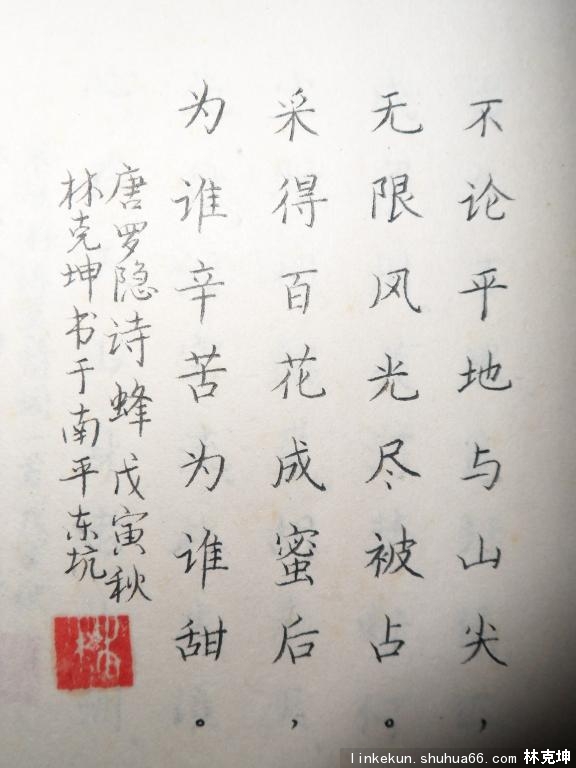 不论平地与山尖，
无限风光尽被占。
采得百花成蜜后，
为谁辛苦为谁甜。
唐罗隐诗蜂戊寅秋
林克坤书于南平东坑
linkekun.shuhua66.com 林克坤